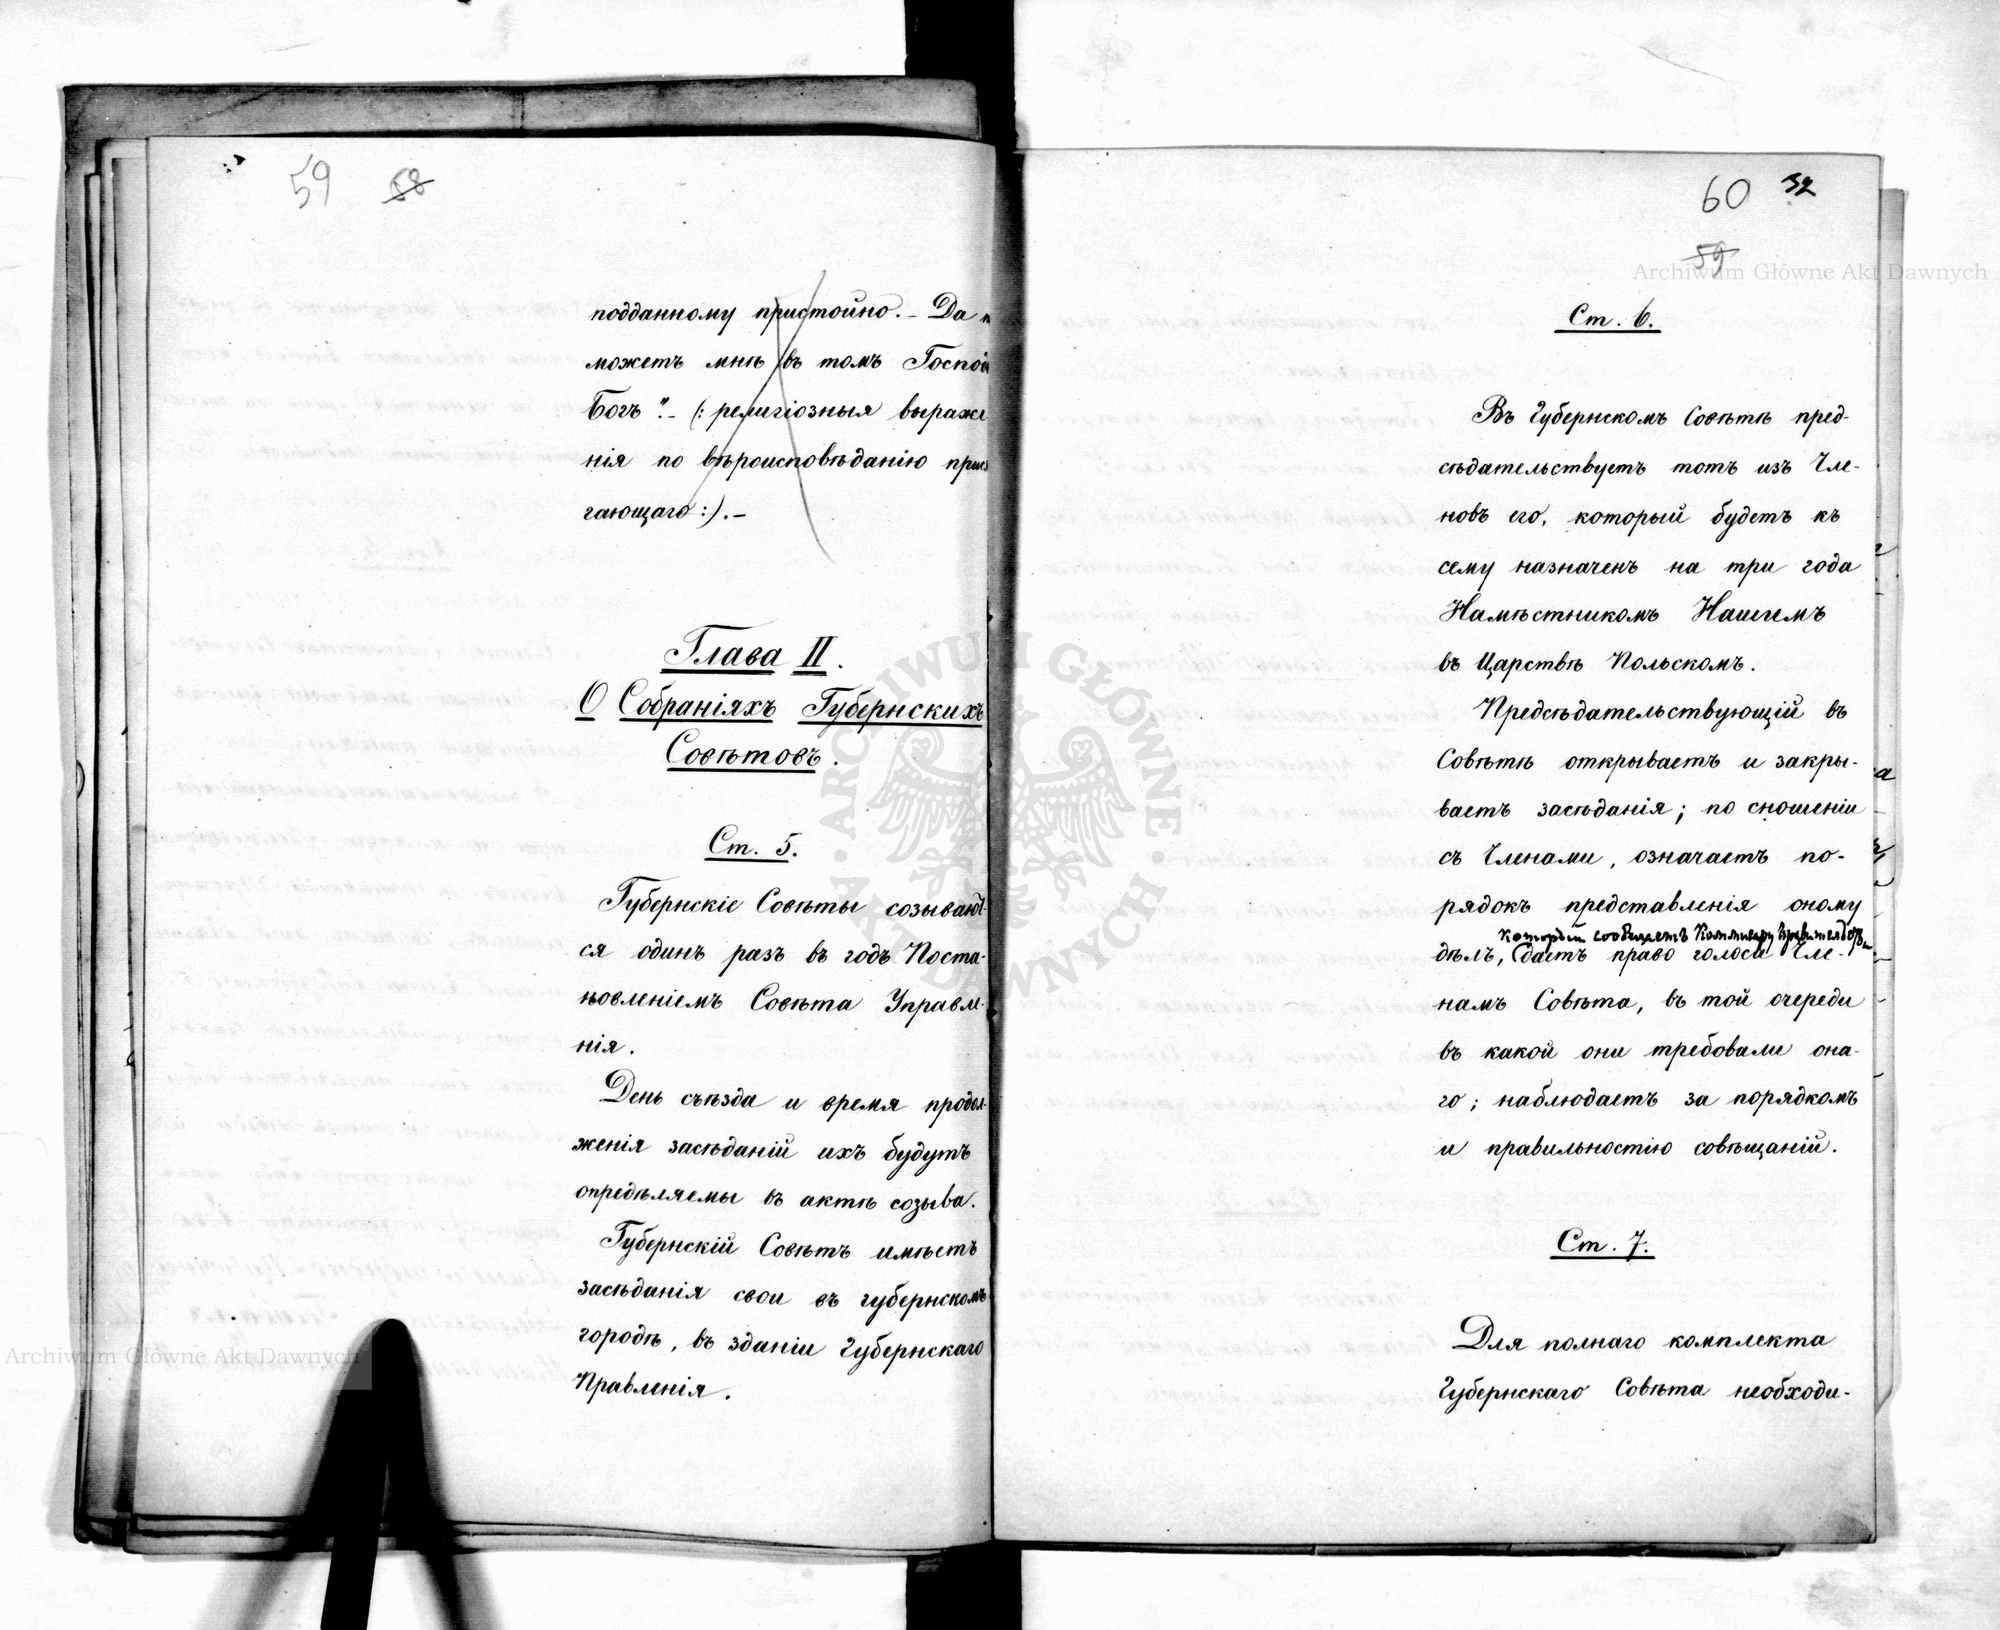 59 58
подданному пристойно. – Да
можетъ мнѣ въ томъ Господ
Богъ". – (: религіозныя выраже
нія по вѣроисповѣданію прися
гающаго :). –
Глава II.
О Собраніяхъ Губернскихъ
Совѣтовъ.
Ст. 5.
Губернскіе Совѣты созывают-
ся одинъ разъ въ годъ Поста-
новленіемъ Совѣта Управле-
нія.
День съѣзда и время продол-
женія засѣданій ихъ будутъ
опредѣляемы въ актѣ созыва.
Губернскій Совѣтъ имѣетъ
засѣданія свои въ губернскомъ
городѣ, въ зданіи Губернскаго
Правленія.
60 32
59
Ст. 6.
Въ Губернскомъ Совѣтѣ пред-
сѣдательствуетъ тотъ изъ Чле-
новъ его, который будетъ къ
сему назначенъ на три года
Намѣстникомъ Нашимъ
въ Царствѣ Польскомъ.
Предсѣдательствующій въ
Совѣтѣ открываетъ и закры-
ваетъ засѣданія; по сношеніи
съ Членами, означаетъ по-
рядокъ представленія оному
который сообщаетъ Коммисару
дѣлъ, даетъ право голоса Чле-
намъ Совѣта, въ той очереди
въ какой они требовали она-
го; наблюдаетъ за порядкомъ
и правильностію совѣщаній.
Ст. 7.
Для полнаго комплекта
Губернскаго Совѣта необходи-
Archiwum Główne Akt Dawnych
Archiwum Główne Akt Dawnych
ARCHIWUM GŁÓWNE AKT DAWNYCH